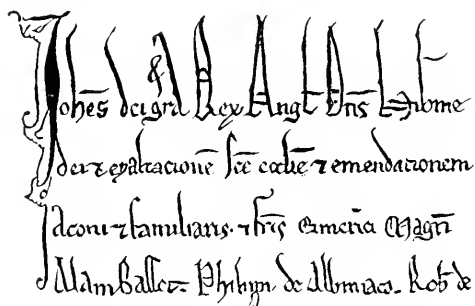 Johēs dei grā Rex Angł Dñs Hibnie
dei ⁊ exaltacionē scē ecclīe ⁊ emendationem
aconi ⁊ familiaris. fr̄is Magr̄i
Alani Basset. Philippi. de Albiniaco. Rob̄ de